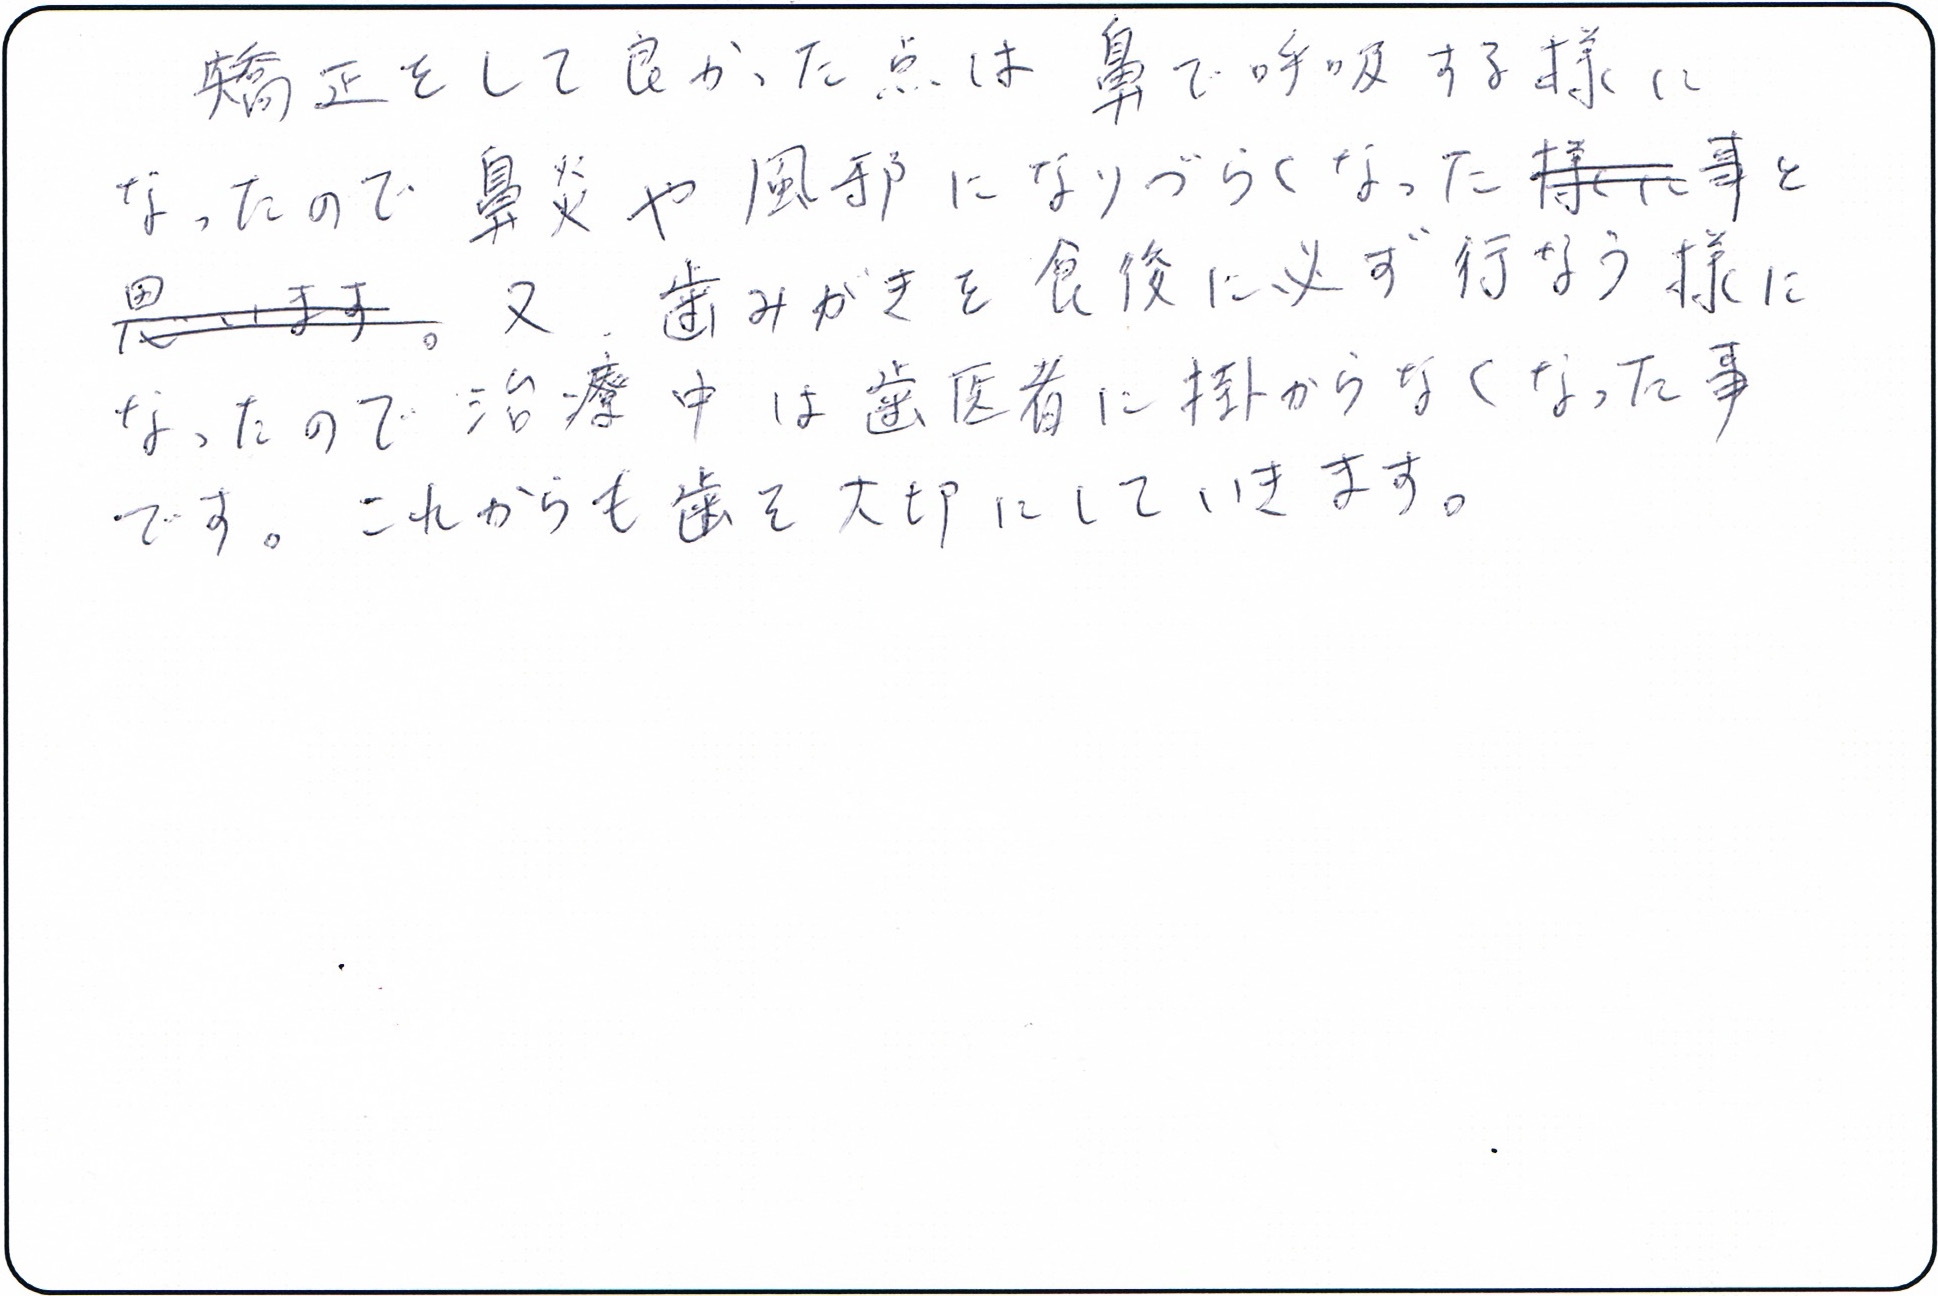 矯正をして良かった点は鼻で呼吸する様に
なったので鼻炎や風邪になりづらくなった様に事と
思います。又、歯みがきを食後に必ず行なう様に
なったので治療中は歯医者に掛からなくなった事
です。これからも歯を大切にしていきます。